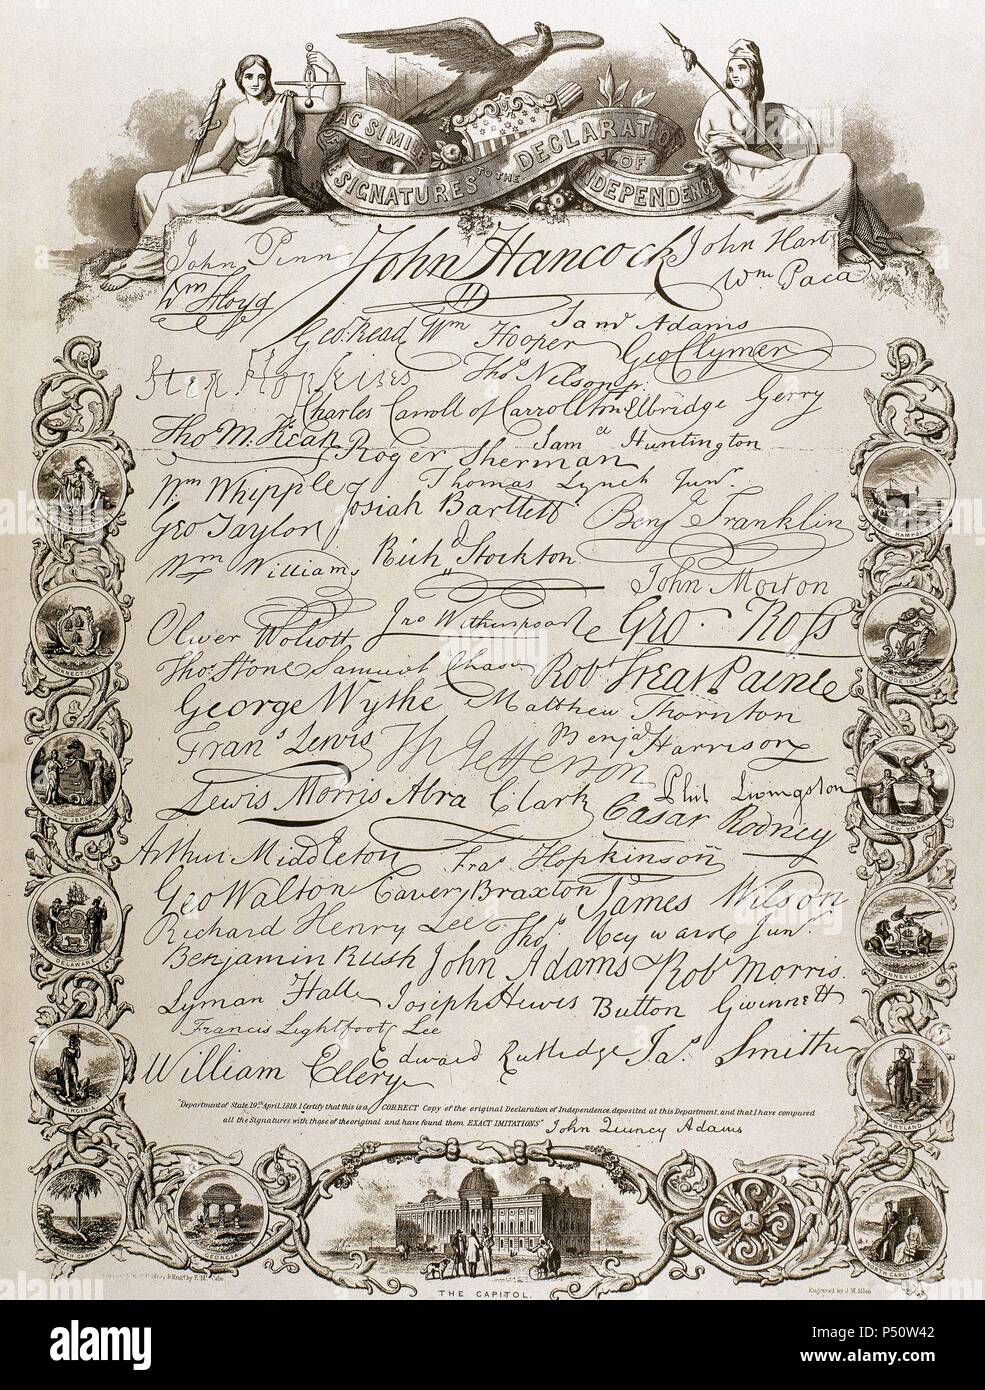 FAC SIMILE
OF THE SIGNATURES TO THE DECLARATION
OF INDEPENDENCE
John Penn John Hancock John Hart
Wm Floyd Wm Paca
Geo. Read Wm Hooper Saml Adams
Geo Clymer
Step. Hopkins Thos Nelson jr.
Charles Carroll of Carrollton Elbridge Gerry
Tho M. Kean Roger Sherman Saml Huntington
Wm Whipple Thomas Lynch Junr.
Josiah Bartlett Benja Franklin
Geo Taylor
Wm Williams Richd Stockton John Morton
Oliver Wolcott Jno Witherspoon Geo. Ross
Thos Stone Samuel Chase Robt Treat Paine
George Wythe Matthew Thornton
Frans Lewis Th Jefferson Benja Harrison
Lewis Morris Abra Clark Phil Livingston
Casar Rodney
Arthur Middleton Fras Hopkinson
Geo Walton Carter Braxton James Wilson
Richard Henry Lee Thos Heyward Junr.
Benjamin Rush John Adams Robt Morris.
Lyman Hall Joseph Hewes Button Gwinnett
Francis Lightfoot Lee
William Ellery Edward Rutledge Jas Smith
"Department of State, 19th April, 1819. I Certify that this is a CORRECT Copy of the original Declaration of Independence, deposited at this Department, and that I have compared
all the Signatures with those of the original and have found them EXACT IMITATIONS" John Quincy Adams
CONNECTICUT
RHODE ISLAND
NEW JERSEY
NEW YORK
DELAWARE
PENNSYLVANIA
VIRGINIA
MARYLAND
GEORGIA
NORTH CAROLINA
THE CAPITOL.
Engraved by J. W. Allen
alamy
alamy
Image ID: P50W42
www.alamy.com